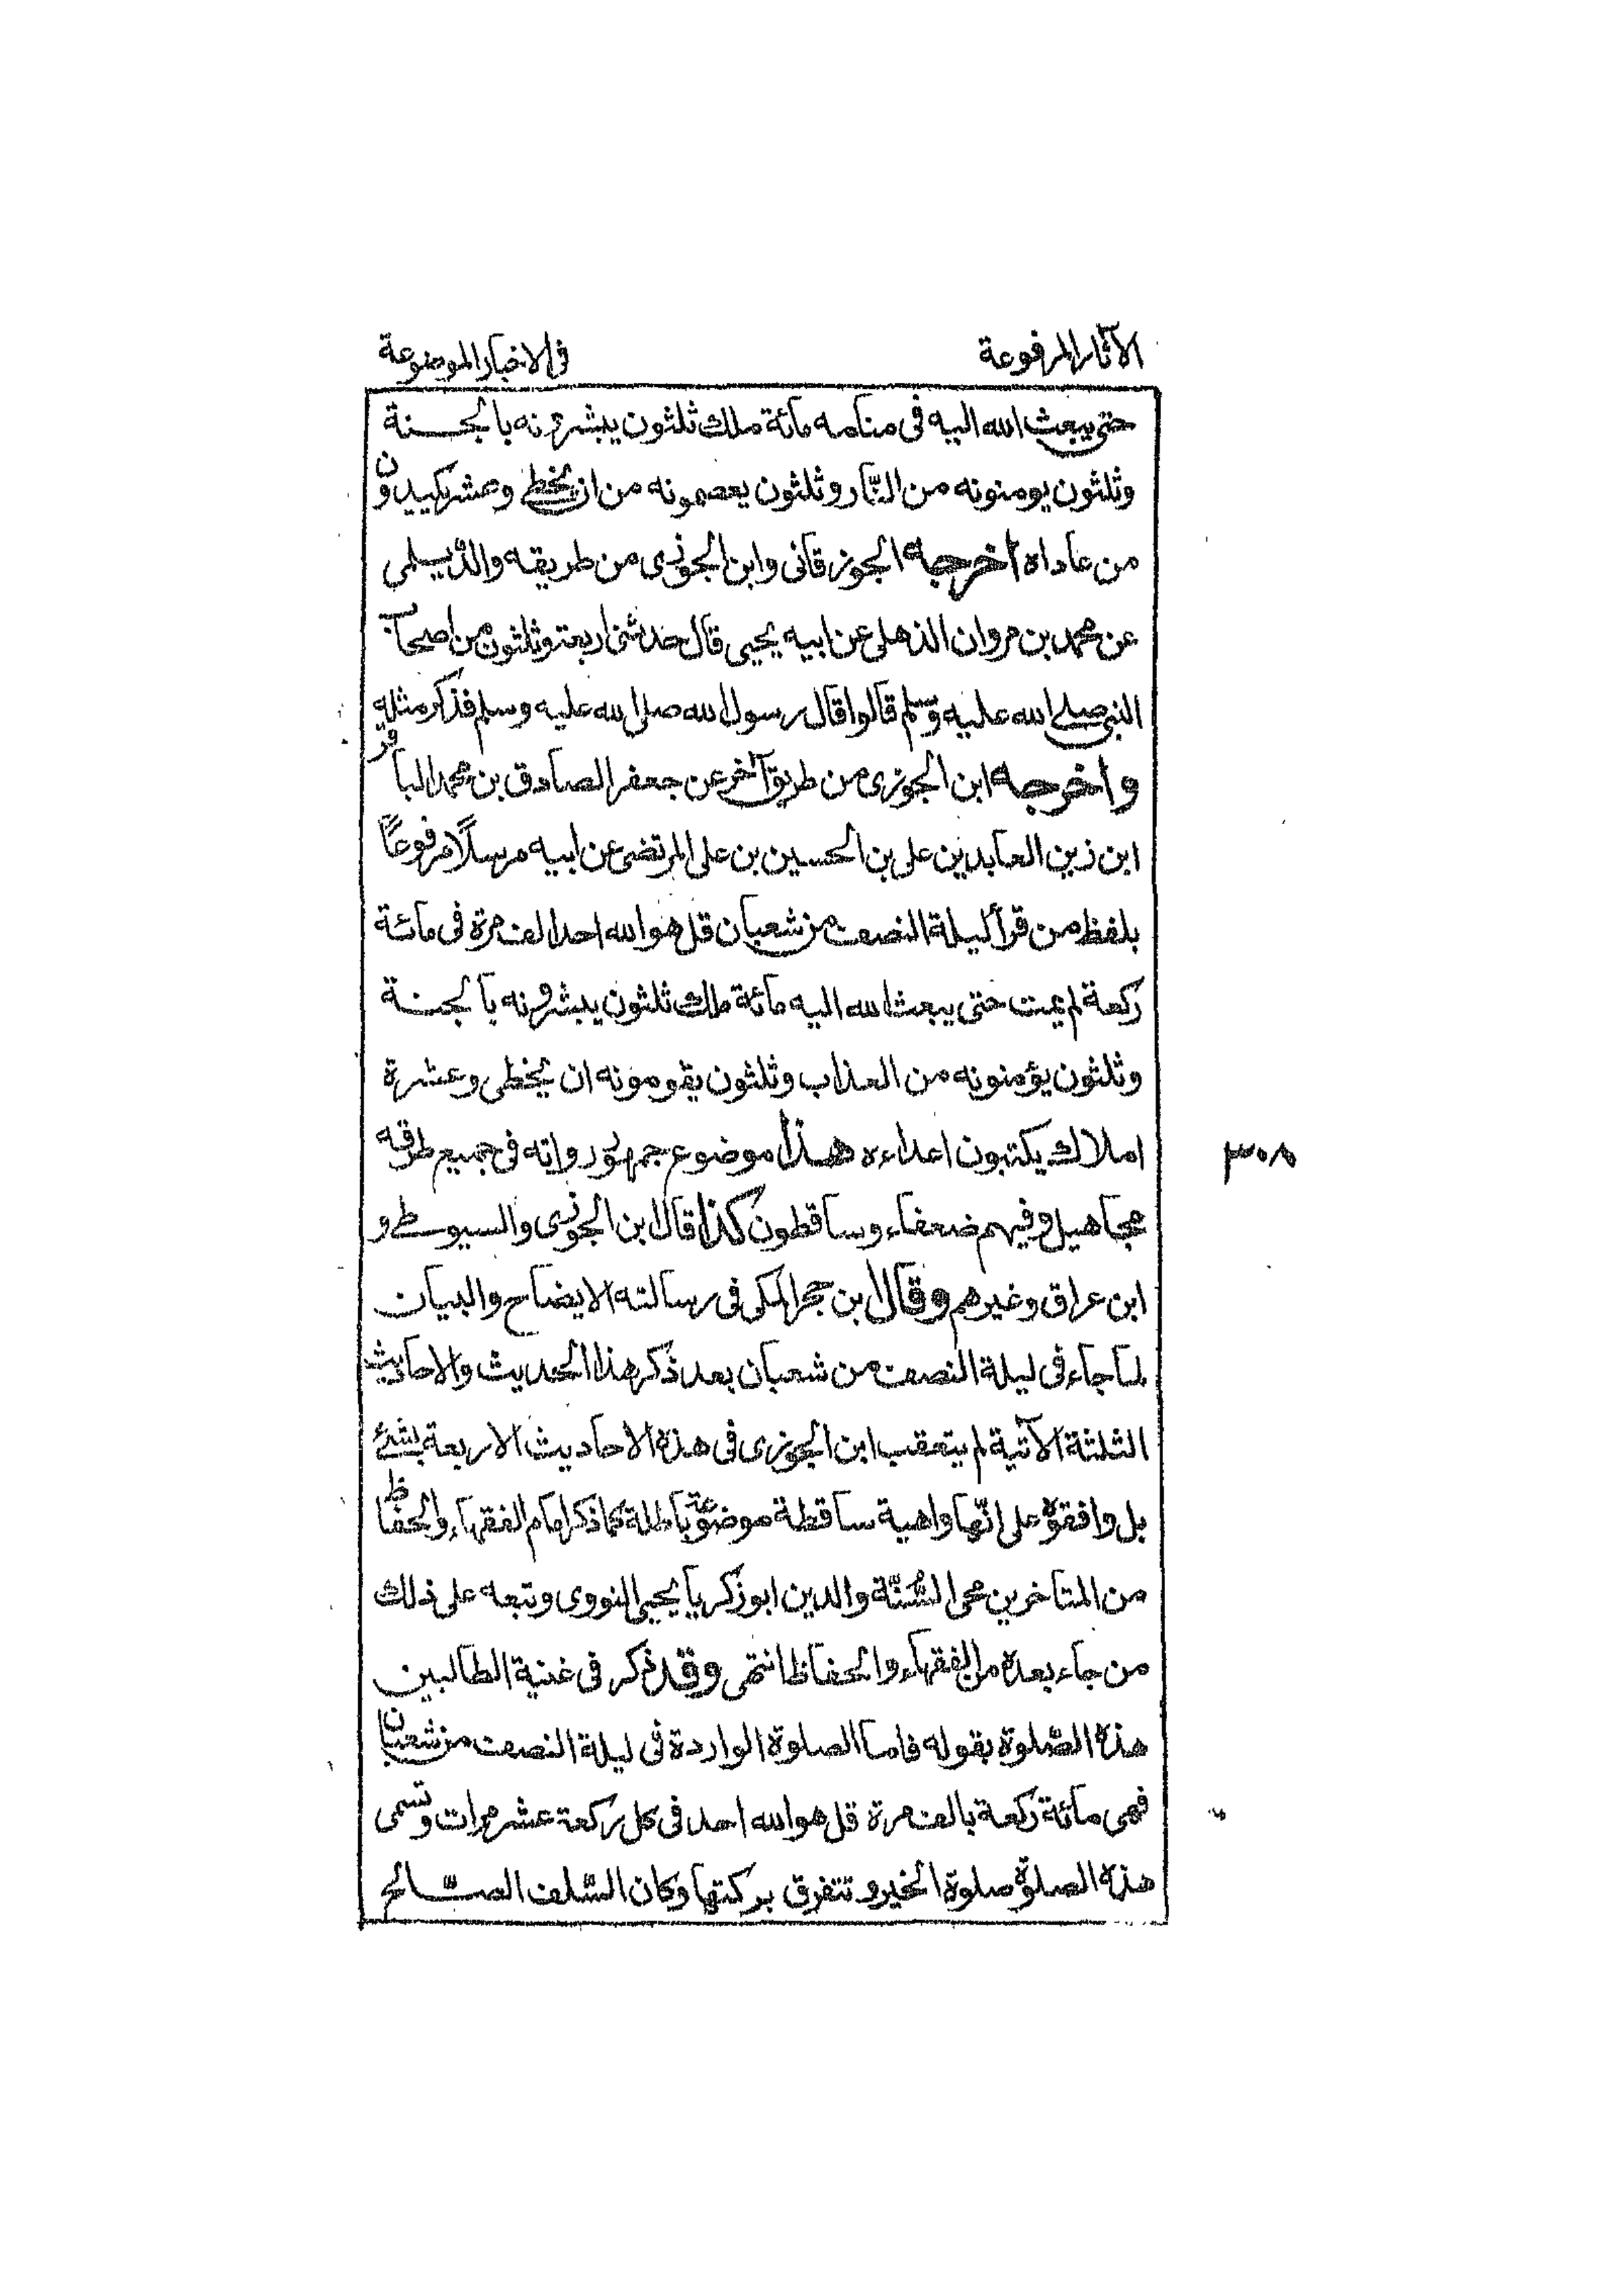 الآثار المرفوعة
فى الاخبار الموضوعة
حتى يبعث الله اليه فى منامه مائة ملك ثلثون يبشرونه بالجنة
وثلثون يومنونه من النّار وثلثون يعصمونه من ان يخطى وعشر يكيدون
من عاداه اخرجه الجوزقانى وابن الجوزى من طريقه والدّيلمى
عن محمد بن مروان الذهلى عن ابيه يحيى قال حدثنى اربعة وثلثون من اصحاب
النبى صلى الله عليه وسلم قالوا قال رسول الله صلى الله عليه وسلم فذكر مثله
واخرجه ابن الجوزى من طريق آخر عن جعفر الصادق بن محمد الباقر
ابن زين العابدين على بن الحسين بن على المرتضى عن ابيه مرسلًا مرفوعًا
بلفظ من قرأ ليلة النصف من شعبان قل هو الله احد الف مرة فى مائة
ركعة لم يمت حتى يبعث الله اليه مائة ملك ثلثون يبشرونه بالجنة
وثلثون يؤمنونه من العذاب وثلثون يقومونه ان يخطى وعشرة
املاك يكتبون اعداءه هذا موضوع جمهور رواته فى جميع طرقه
مجاهيل وفيهم ضعفاء وساقطون كذا قال ابن الجوزى والسيوطى و
ابن عراق وغيرهم وقال ابن حجر المكى فى رسالته الايضاح والبيان
لما جاء فى ليلة النصف من شعبان بعد ذكر هذا الحديث والاحاديث
الثلثة الآتية لم يتعقب ابن الجوزى فى هذه الاحاديث الاربعة بشئ
بل وافقوه على انّها واهية ساقطة موضوعة باطلة كما ذكر امام الفقهاء والحفاظ
من المتاخرين محى السُّنّة والدين ابو زكريا يحيى النووى وتبعه على ذلك
من جاء بعده من الفقهاء والحفاظ انتهى وقد ذكر فى غنية الطالبين
هذه الصّلوة بقوله فاما الصلوة الواردة فى ليلة النصف من شعبان
فهى مائة ركعة بالف مرة قل هو الله احد فى كل ركعة عشر مرات وتسمى
هذه الصلوة صلوة الخير وتتفرق بركتها وكان السّلف الصّالح
٣٠٨